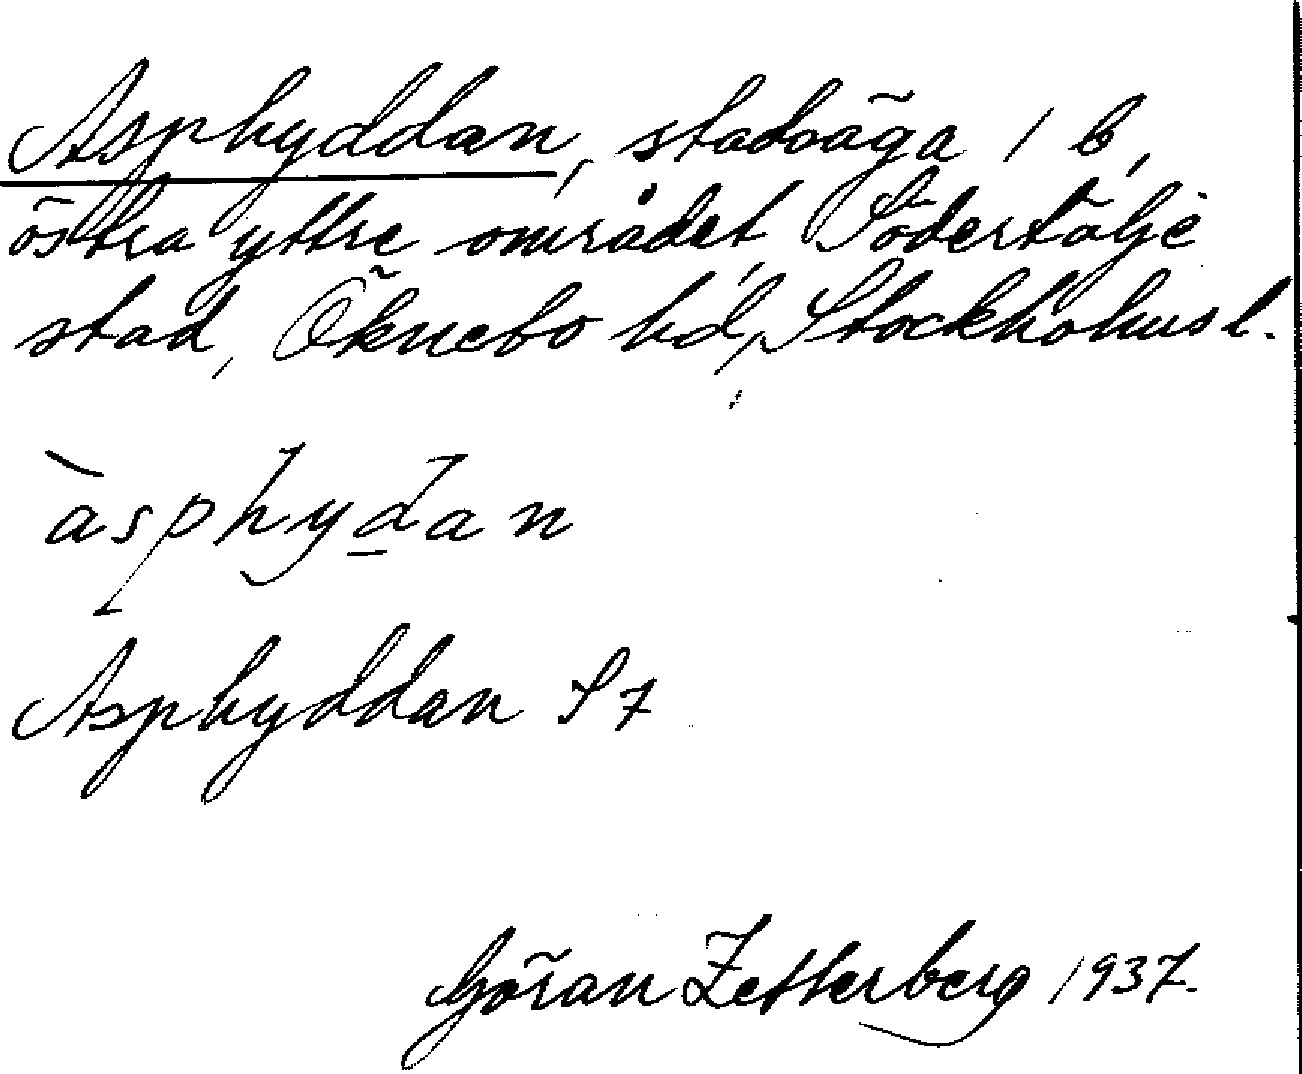 Asphyddan, stadsäga 1 b,
östra yttre området, Södertälje
stad, Öknebo hd, Stockholms l.
àsphyd̲an
Asphyddan S 7
Göran Zetterberg 1937.